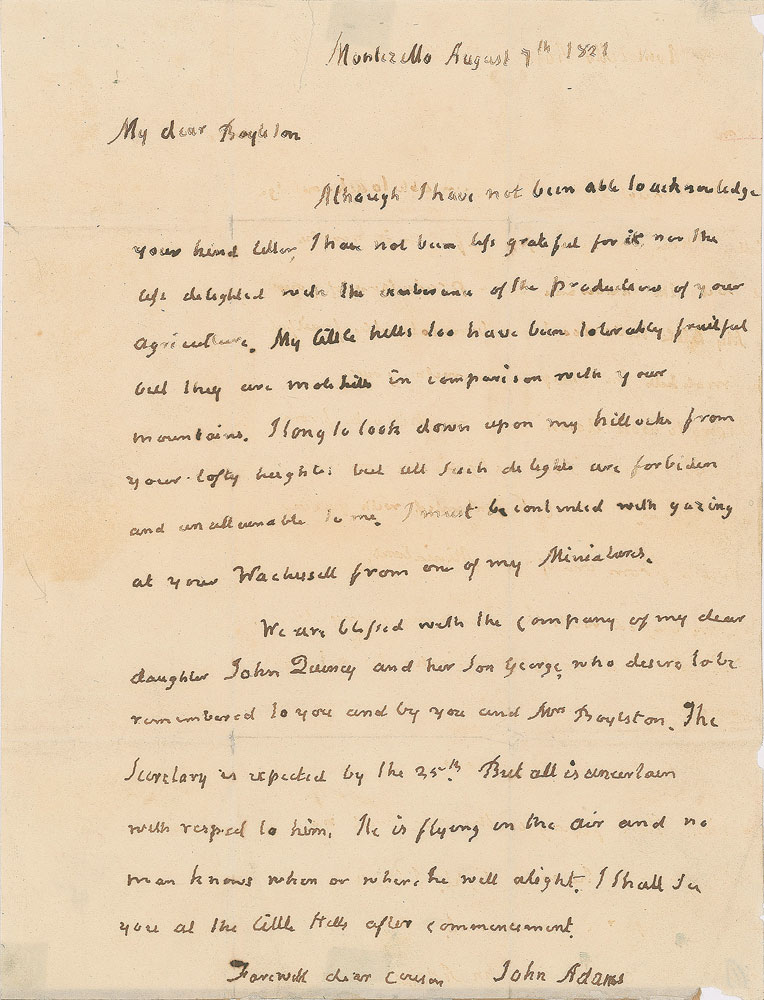 Montezillo August 7th 1821
My dear Boylston
Although I have not been able to acknowledge
your kind letter, I have not been less grateful for it, nor the
less delighted with the exuberance of the productions of your
agriculture. My little hills too have been tolerably fruitful
but they are molehills in comparison with your
mountains. I long to look down upon my hillocks from
your lofty heights: but all such delights are forbiden
and unattainable to me. I must be contented with gazing
at your Wachusett from one of my Miniatures.
We are blessed with the company of my dear
daughter John Quincy and her Son George, who desire to be
remembered to you and by you and Mrs Boylston. The
Secretary is expected by the 25th. But all is uncertain
with respect to him. He is flying in the air and no
man knows when or where he will alight. I shall see
you at the little Hills after commencement.
Farewell dear cousin John Adams